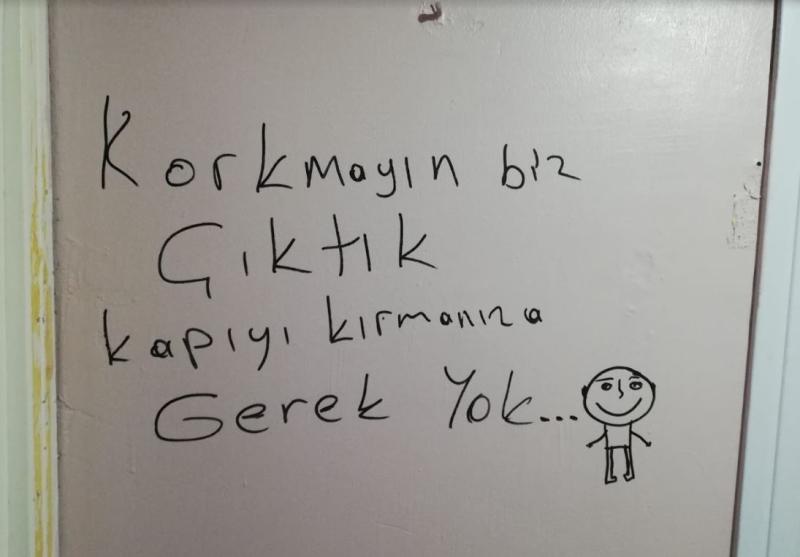 Korkmayın biz
Çıktık
kapıyı kırmanıza
Gerek Yok...